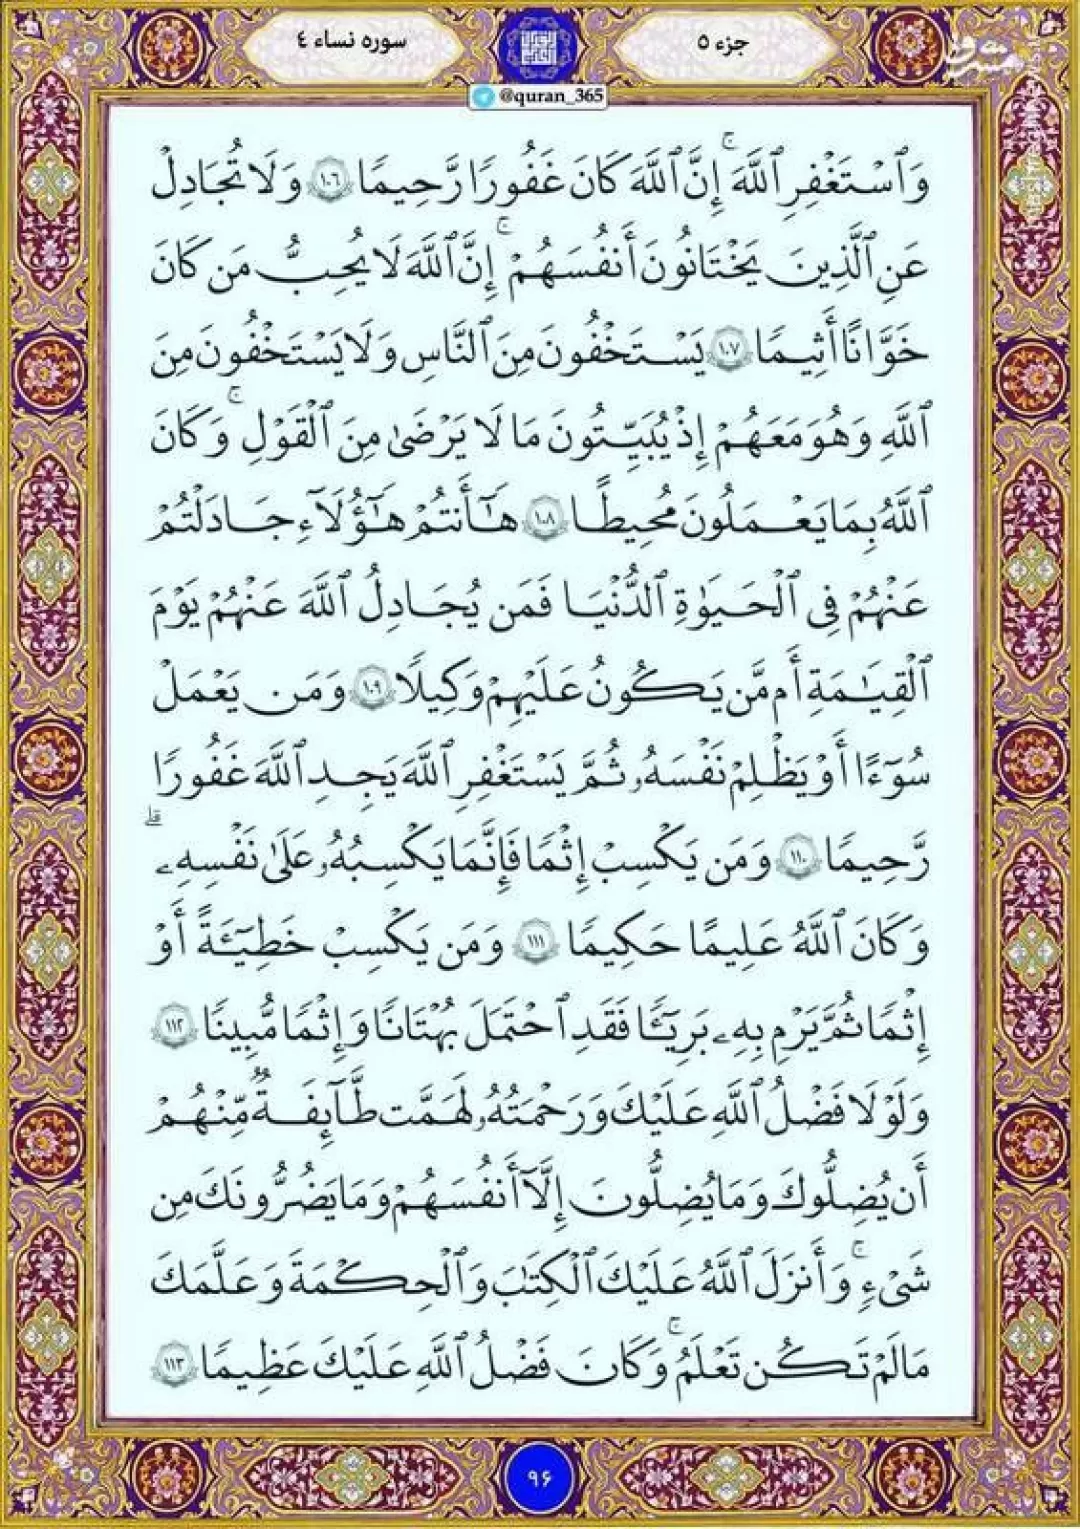 جزء ۵
سوره نساء ٤
@quran_365
مشرق
وَٱسْتَغْفِرِ ٱللَّهَ ۖ إِنَّ ٱللَّهَ كَانَ غَفُورًا رَّحِيمًا ١٠٦ وَلَا تُجَادِلْ
عَنِ ٱلَّذِينَ يَخْتَانُونَ أَنفُسَهُمْ ۚ إِنَّ ٱللَّهَ لَا يُحِبُّ مَن كَانَ
خَوَّانًا أَثِيمًا ١٠٧ يَسْتَخْفُونَ مِنَ ٱلنَّاسِ وَلَا يَسْتَخْفُونَ مِنَ
ٱللَّهِ وَهُوَ مَعَهُمْ إِذْ يُبَيِّتُونَ مَا لَا يَرْضَىٰ مِنَ ٱلْقَوْلِ ۚ وَكَانَ
ٱللَّهُ بِمَا يَعْمَلُونَ مُحِيطًا ١٠٨ هَٰٓأَنتُمْ هَٰٓؤُلَآءِ جَادَلْتُمْ
عَنْهُمْ فِى ٱلْحَيَوٰةِ ٱلدُّنْيَا فَمَن يُجَادِلُ ٱللَّهَ عَنْهُمْ يَوْمَ
ٱلْقِيَٰمَةِ أَم مَّن يَكُونُ عَلَيْهِمْ وَكِيلًا ١٠٩ وَمَن يَعْمَلْ
سُوٓءًا أَوْ يَظْلِمْ نَفْسَهُۥ ثُمَّ يَسْتَغْفِرِ ٱللَّهَ يَجِدِ ٱللَّهَ غَفُورًا
رَّحِيمًا ١١٠ وَمَن يَكْسِبْ إِثْمًا فَإِنَّمَا يَكْسِبُهُۥ عَلَىٰ نَفْسِهِۦ ۗ
وَكَانَ ٱللَّهُ عَلِيمًا حَكِيمًا ١١١ وَمَن يَكْسِبْ خَطِيٓـَٔةً أَوْ
إِثْمًا ثُمَّ يَرْمِ بِهِۦ بَرِيٓـًٔا فَقَدِ ٱحْتَمَلَ بُهْتَانًا وَإِثْمًا مُّبِينًا ١١٢
وَلَوْلَا فَضْلُ ٱللَّهِ عَلَيْكَ وَرَحْمَتُهُۥ لَهَمَّت طَّآئِفَةٌ مِّنْهُمْ
أَن يُضِلُّوكَ وَمَا يُضِلُّونَ إِلَّآ أَنفُسَهُمْ وَمَا يَضُرُّونَكَ مِن
شَىْءٍ ۚ وَأَنزَلَ ٱللَّهُ عَلَيْكَ ٱلْكِتَٰبَ وَٱلْحِكْمَةَ وَعَلَّمَكَ
مَا لَمْ تَكُن تَعْلَمُ ۚ وَكَانَ فَضْلُ ٱللَّهِ عَلَيْكَ عَظِيمًا ١١٣
۹۶